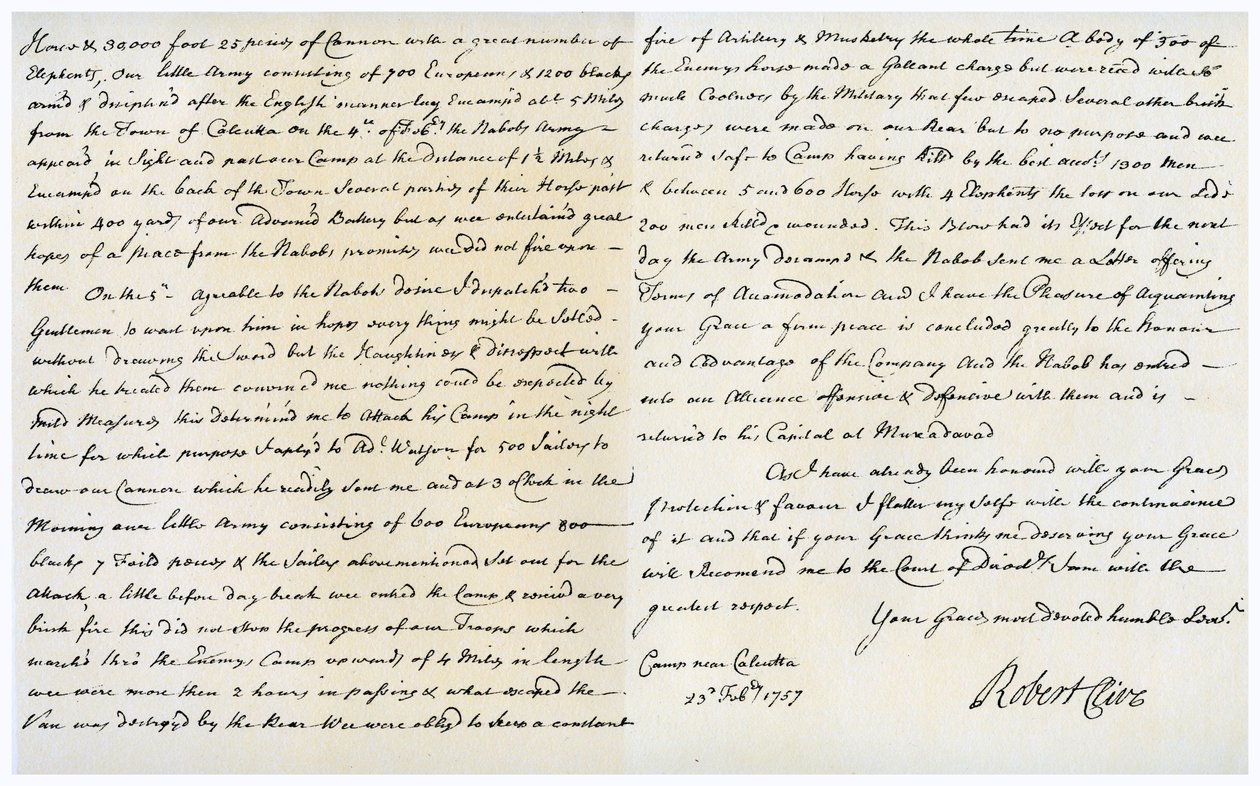 Horse & 30,000 foot 25 peices of Cannon with a great number of
Elephents, Our little Army consisting of 700 Europeans & 1200 blacks
arm'd & disciplin'd after the English manner lay Encamp'd abt. 5 Miles
from the Town of Calcutta on the 4th. of Febry. the Nabobs Army
appear'd in sight and past our Camp at the distance of 1½ Miles &
Encamp'd on the back of the Town Several parties of their Horse past
within 400 yards of our Advanc'd Battery but as wee entertain'd great
hopes of a peace from the Nabobs promises wee did not fire upon
them
On the 5th. Agreable to the Nabob's desire I dispatch'd two
Gentlemen to wait upon him in hopes every thing might be Setled
without drawing the Sword but the Haughtiness & disrespect with
which he treated them convinc'd me nothing could be expected by
mild Measures this Determin'd me to Attack his Camp in the night
time for which purpose I aply'd to Adl. Watson for 500 Sailors to
draw our Cannon which he readily sent me and at 3 oClock in the
Morning our little Army consisting of 600 Europeans 800
blacks 7 Feild peices & the Sailors abovemention'd Set out for the
Attack, a little before day break wee entred the Camp & receiv'd a very
brisk fire this did not stop the progress of our Troops which
march'd thro' the Enemys Camp upwards of 4 Miles in length
wee were more then 2 hours in passing & what escaped the
Van was destroy'd by the Rear Wee were oblig'd to keep a constant
fire of Artillery & Musketry the whole time A body of 300 of
the Enemys horse made a Gallant charge but were recd with so
much Coolness by the Military that few escaped. Several other brisk
charges were made on our Rear but to no purpose and wee
return'd safe to Camp having kill'd by the best accots. 1300 Men
& between 5 and 600 Horse with 4 Elephents the loss on our Side
200 men kill'd & wounded. This Blow had its Effect for the next
day the Army decamp'd & the Nabob sent me a Letter offering
Terms of Accomodation and I have the Pleasure of Acquainting
your Grace a firm peace is concluded greatly to the Honour
and Advantage of the Company And the Nabob has entred
into an Allience offensive & defensive with them and is
return'd to his Capital at Muxadavad
As I have already been honour'd with your Graces
protection & favour I flatter my Selfe with the continuience
of it and that if your Grace thinks me deserving your Grace
will Recomend me to the Court of Directrs. I am with the
greatest respect.
Your Graces most devoted humble Servt.
Camp near Calcutta
23d. Febry 1757
Robert Clive